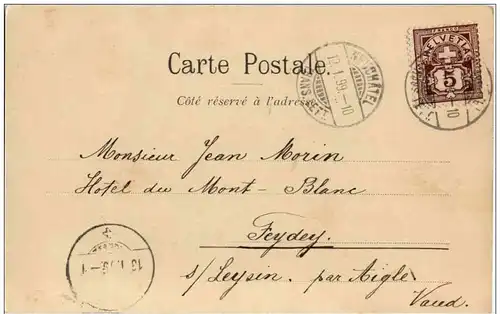 HELVETIA
FRANCO
5
Carte Postale.
NEUCHÂTEL
13.I.99.-10
Côté réservé à l'adresse.
Monsieur Jean Morin
Hotel du Mont-Blanc
Feydey.
s/ Leysin. par Aigle
Vaud.